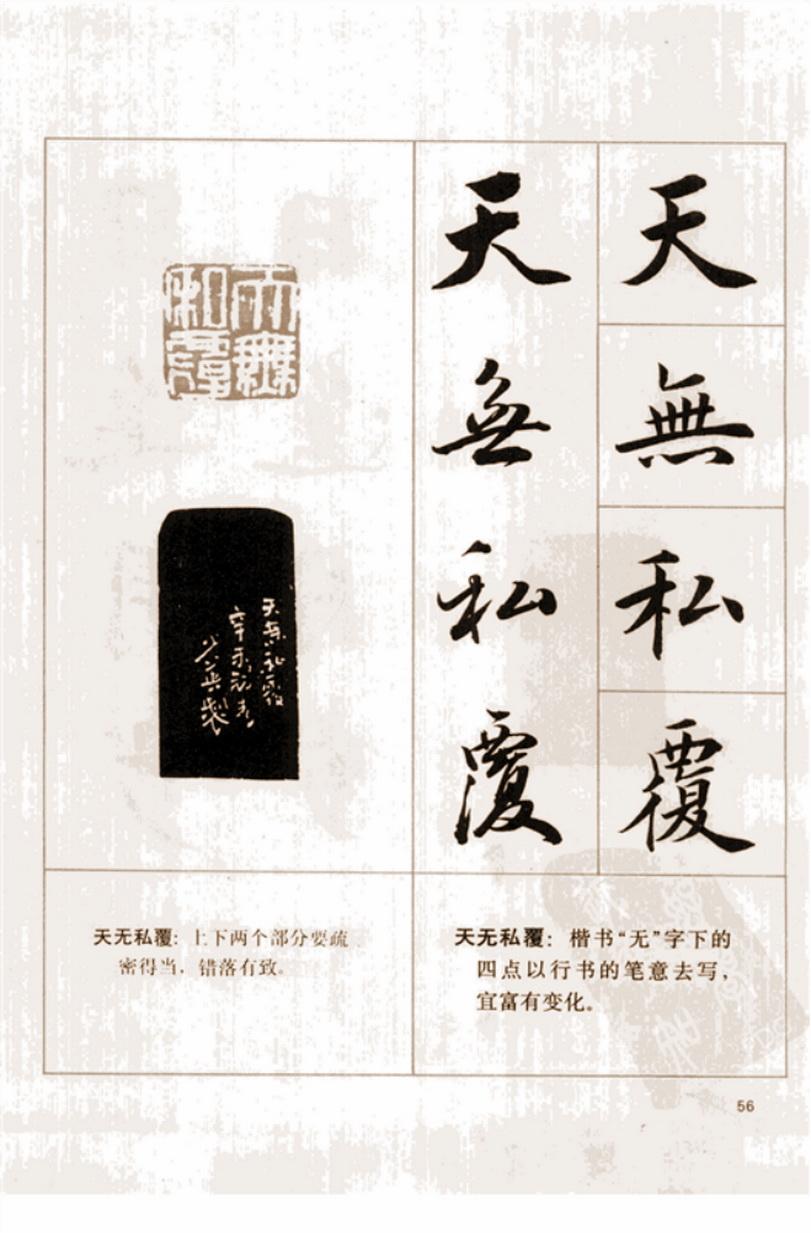 天無私覆
天無私覆
天無私覆
天無私覆
辛未初春
少英製
天无私覆：上下两个部分要疏
密得当，错落有致。
天无私覆：楷书“无”字下的
四点以行书的笔意去写，
宜富有变化。
56